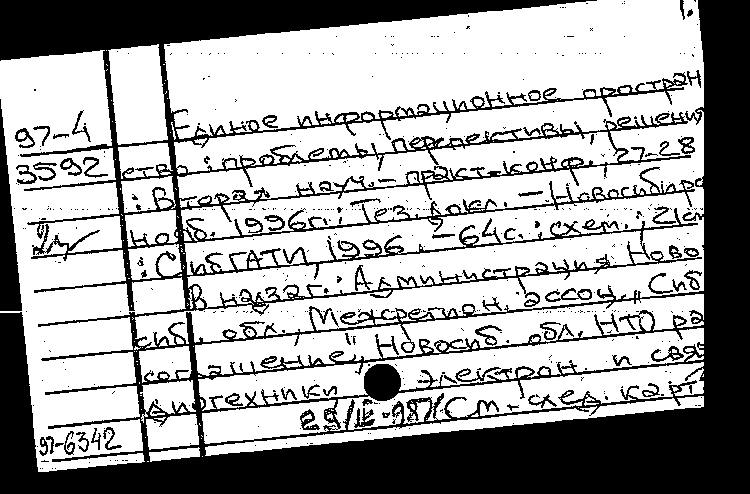 97-4 Единое информационное простран
3592 ство : проблемы, перспективы, решения
: Вторая науч.- практ. конф., 27-28
нояб. 1996г.: Тез. докл. — Новосибирс
: СибГАТИ, 1996. — 64с. : схем. ; 21см
В надзаг.: Администрация Ново
сиб. обл., Межрегион. ассоц. „Сиб.
соглашение", Новосиб. обл. НТО ра
диотехники электрон. и связ
См. след. карт
97-6342